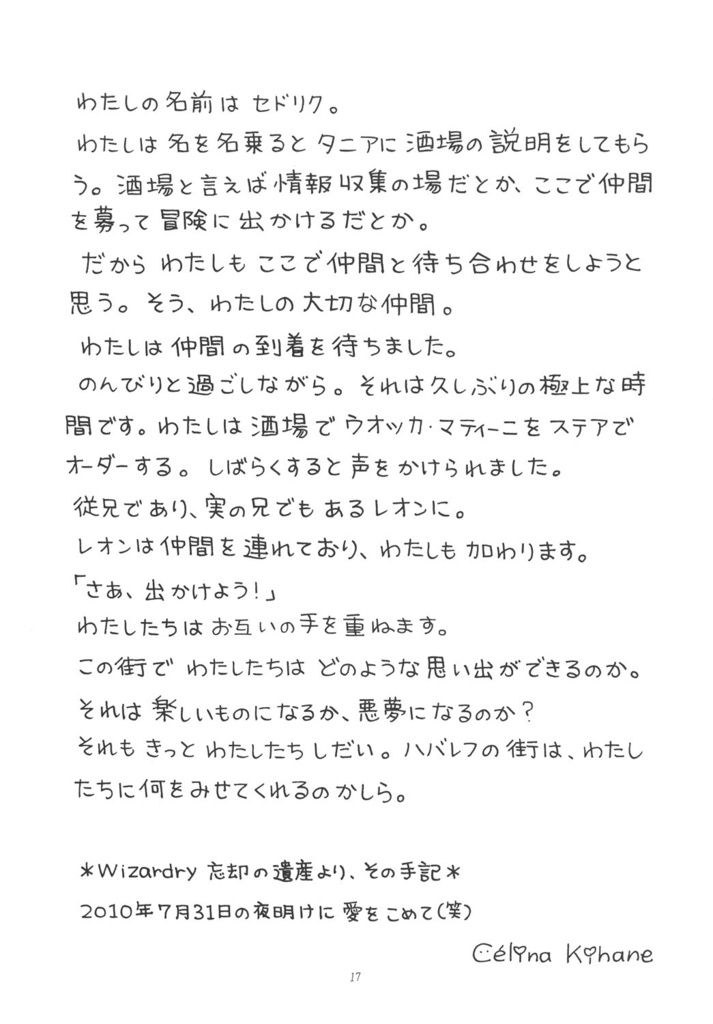 わたしの名前は セドリク。
わたしは 名を名乗ると タニアに 酒場の説明をしてもら
う。酒場と言えば情報収集の場だとか、ここで仲間
を募って冒険に出かけるだとか。
だから わたしも ここで仲間と待ち合わせをしようと
思う。そう、わたしの大切な仲間。
わたしは仲間の到着を待ちました。
のんびりと過ごしながら。それは久しぶりの極上な時
間です。わたしは酒場でウオッカ・マティーニをステアで
オーダーする。しばらくすると声をかけられました。
従兄であり、実の兄でもあるレオンに。
レオンは仲間を連れており、わたしも加わります。
「さあ、出かけよう!」
わたしたちはお互いの手を重ねます。
この街で わたしたちは どのような思い出ができるのか。
それは楽しいものになるか、悪夢になるのか?
それもきっと わたしたちしだい。ハバレフの街は、わたし
たちに何をみせてくれるのかしら。
*Wizardry 忘却の遺産より、その手記*
2010年7月31日の夜明けに 愛をこめて(笑)
Célina Kihane
17